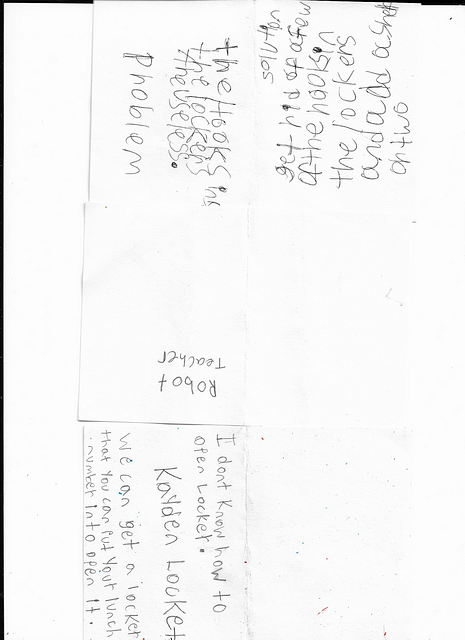 phoblem
the Hooks in
the lockers
solution
get rid of a few
of the hooks in
the lockers
and add a shelf
or two
Robot
Teacher
I dont know how to
open Locket.
Kayden Locket
We can get a locket
that you can put your lunch
number into open it.